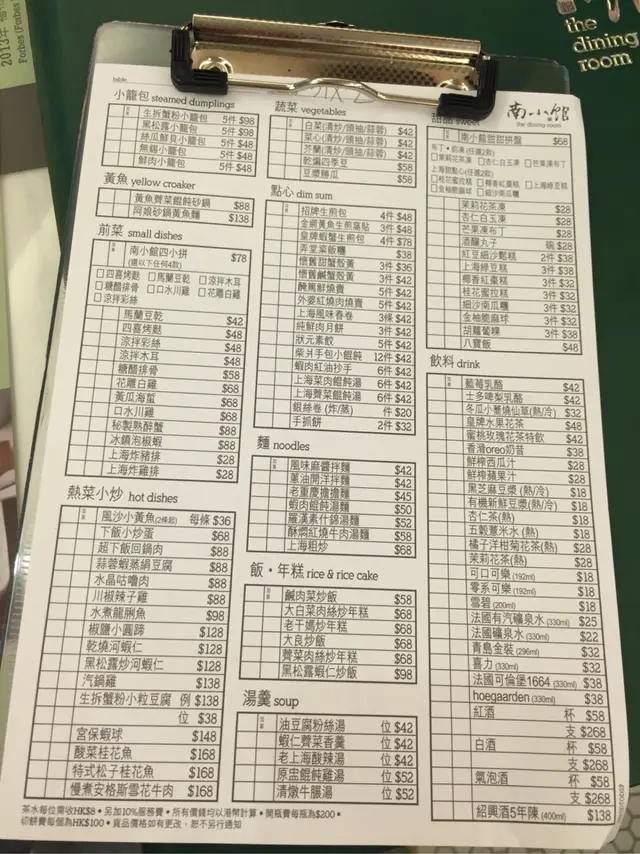 2013年
Forbes (Forbes
the
dining
room
table
南小館
the dining room
小籠包 steamed dumplings
生拆蟹粉小籠包 5件 $98
黑松露小籠包 5件 $98
絲瓜鮮貝小籠包 5件 $48
無錫小籠包 5件 $48
鮮肉小籠包 5件 $48
黃魚 yellow croaker
黃魚薺菜餛飩砂鍋 $88
阿娘砂鍋黃魚麵 $138
前菜 small dishes
南小館四小拼 $78
(選以下任何4款)
四喜烤麩 馬蘭豆乾 涼拌木耳
糖醋排骨 口水川雞 花雕白雞
涼拌彩絲
馬蘭豆乾 $42
四喜烤麩 $48
涼拌彩絲 $48
涼拌木耳 $48
糖醋排骨 $58
花雕白雞 $68
黃瓜海蜇 $68
口水川雞 $68
秘製熟醉蟹 $88
冰鎮泡椒蝦 $88
上海炸豬排 $28
上海炸雞排 $28
熱菜小炒 hot dishes
風沙小黃魚(2條起) 每條 $36
下飯小炒蛋 $68
超下飯回鍋肉 $88
蒜蓉蝦蒸絹豆腐 $88
水晶咕嚕肉 $88
川椒辣子雞 $88
水煮龍脷魚 $98
椒鹽小圓蹄 $128
乾燒河蝦仁 $128
黑松露炒河蝦仁 $128
汽鍋雞 $138
生拆蟹粉小粒豆腐 例 $138
位 $38
宮保蝦球 $148
酸菜桂花魚 $168
特式松子桂花魚 $168
慢煮安格斯雪花牛肉 $168
蔬菜 vegetables
白菜(清炒/頭抽/蒜蓉) $42
菜心(清炒/頭抽/蒜蓉) $42
芥蘭(清炒/頭抽/蒜蓉) $42
乾煸四季豆 $58
豆漿勝瓜 $58
點心 dim sum
招牌生煎包 4件 $48
金網黃魚生煎窩貼 3件 $48
皇牌蝦蟹生煎包 4件 $78
弄堂粢飯糰 $38
懷舊甜蟹殼黃 3件 $36
懷舊鹹蟹殼黃 3件 $36
醃篤鮮燒賣 5件 $42
外婆紅燒肉燒賣 5件 $42
上海風味春卷 3條 $42
純鮮肉月餅 3件 $42
狀元素餃 5件 $42
柴爿手包小餛飩 12件 $42
蝦肉紅油抄手 6件 $42
上海菜肉餛飩湯 6件 $42
上海薺菜餛飩湯 6件 $42
銀絲卷 (炸/蒸) 件 $20
手抓餅 2件 $32
麵 noodles
風味麻醬拌麵 $42
蔥油開洋拌麵 $42
老重慶擔擔麵 $45
蝦肉餛飩湯麵 $50
羅漢素什錦湯麵 $52
酥燜紅燒牛肉湯麵 $58
上海粗炒 $68
飯・年糕 rice & rice cake
鹹肉菜炒飯 $58
大白菜肉絲炒年糕 $68
老干媽炒年糕 $68
大良炒飯 $68
薺菜肉絲炒年糕 $68
黑松露蝦仁炒飯 $98
湯羹 soup
油豆腐粉絲湯 位 $42
蝦仁薺菜香羹 位 $42
老上海酸辣湯 位 $42
原盅餛飩雞湯 位 $52
清燉牛腸湯 位 $52
甜品 sweet
南小館甜甜拼盤 $68
布丁・啫凍(任選2款)
茉莉花茶凍 杏仁白玉凍 芒果凍布丁
上海甜點心(任選2款)
桂花蜜拉糕 椰香紅棗糕 上海綠豆糕
金柚脆麻球 細沙南瓜糰
茉莉花茶凍 $28
杏仁白玉凍 $28
芒果凍布丁 $28
酒釀丸子 碗 $28
紅豆細沙鬆糕 2件 $38
上海綠豆糕 3件 $38
椰香紅棗糕 3件 $32
桂花蜜拉糕 3件 $32
細沙南瓜糰 3件 $32
金柚脆麻球 3件 $32
胡蘿蔔粿 3件 $38
八寶飯 $48
飲料 drink
藍莓乳酪 $42
士多啤梨乳酪 $42
冬瓜小薏燒仙草(熱/冷) $32
皇牌水果花茶 $48
蜜桃玫瑰花茶特飲 $42
香滑oreo奶昔 $38
鮮榨西瓜汁 $28
鮮榨蘋果汁 $28
黑芝麻豆漿 (熱/冷) $18
有機新鮮豆漿 (熱/冷) $18
杏仁茶(熱) $18
五穀薏米水 (熱) $18
橘子洋柑菊花茶(熱) $28
茉莉花茶(熱) $28
可口可樂 (192ml) $18
零系可樂 (192ml) $18
雪碧 (200ml) $18
法國有汽礦泉水 (330ml) $25
法國礦泉水 (330ml) $22
青島金裝 (296ml) $32
喜力 (330ml) $32
法國可倫堡1664 (330ml) $38
hoegaarden (330ml) $38
紅酒 杯 $58
支 $268
白酒 杯 $58
支 $268
氣泡酒 杯 $58
支 $268
紹興酒5年陳 (400ml) $138
茶水每位需收HK$8・另加10%服務費・所有價錢均以港幣計算・開瓶費每瓶為$200・
切餅費每個為HK$100・貨品價格如有更改，恕不另行通知